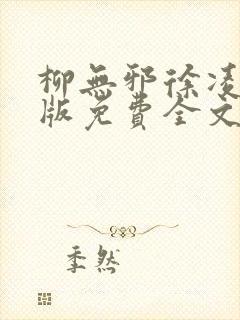 柳無邪徐凌
版免費全文
季然